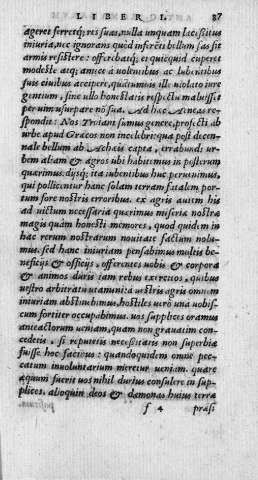 LIBER I. 87
ageret ferretq; res suas, nulla unquam lacessitus
iniuria, nec ignorans quod inferēti bellum fas sit
armis resistere: offerebatq; ei quicquid cuperet
modeste atq; amice à uolentibus ac lubentibus
suis ciuibus accipere, quàm uimis ille uiolato iure
gentium, sine ullo honestatis respectu maluisset
per uim usurpare nō sua. Ad hac Aeneas re-
spondit: Nos Troiani sumus genere, profecti ab
urbe apud Græcos non incelebri: qua post decen-
nale bellum ab Achæis capta, errabundi ur-
bem aliam & agros ubi habitemus in posterum
quærimus: dijsq; ita iubentibus huc peruenimus,
qui pollicentur hanc solam terram fatalem, por-
tum fore nostris erroribus. ex agris autem his
ad uictum necessaria quærimus miseria nostræ
magis quàm honesti memores, quod quidem in
hac rerum nostrarum nouitate factum nolui-
mus. sed hanc iniuriam pensabimus multis be-
neficijs & officijs, offerentes uobis & corpora
& animos duris iam rebus exercitos, quibus
uestro arbitratu utamini: a uestris agris omnem
iniuriam abstinebimus, hostiles uerò una uobis-
cum fortiter occupabimus. uos supplices oramus
anteactorum ueniam, quam non grauatim con-
cedetis, si reputetis necessitatis non superbiæ
fuisse hoc facinus: quandoquidem omne pec-
catum inuoluntarium meretur ueniam. quare
æquum fuerit uos nihil durius consulere in sup-
plices. alioquin deos & dæmonas huius terræ
f 4 præsi